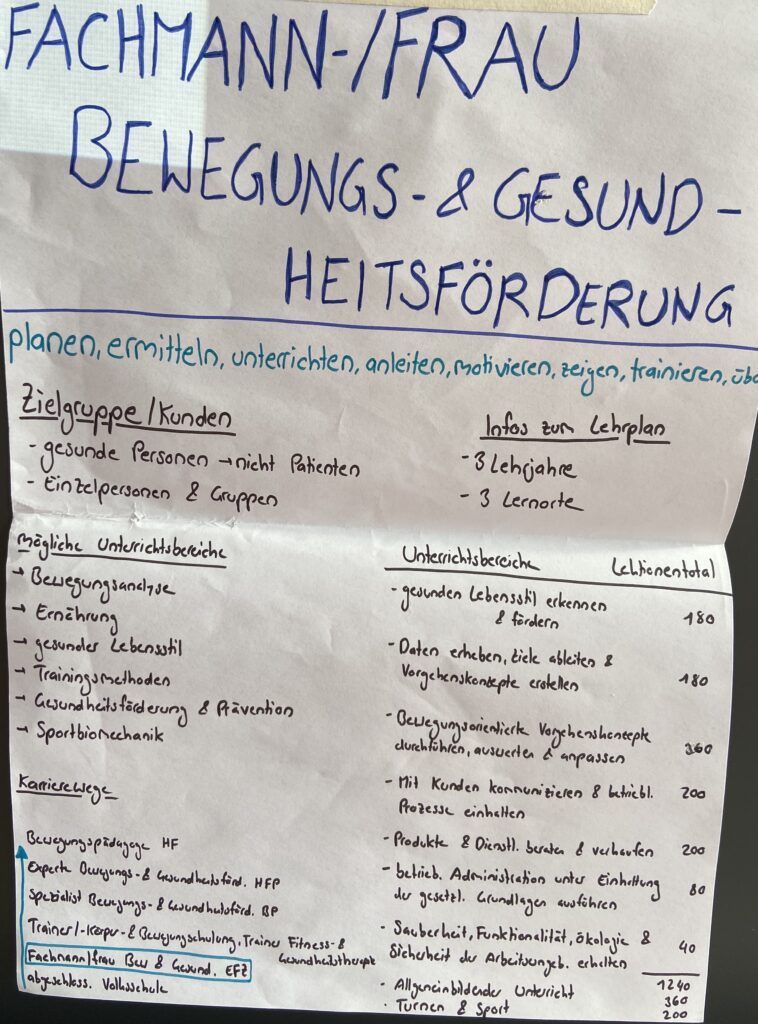 FACHMANN-/FRAU
BEWEGUNGS- & GESUND-
HEITSFÖRDERUNG
planen, ermitteln, unterrichten, anleiten, motivieren, zeigen, trainieren, übe
Zielgruppe/Kunden
- gesunde Personen → nicht Patienten
- Einzelpersonen & Gruppen
Infos zum Lehrplan
- 3 Lehrjahre
- 3 Lernorte
Mögliche Unterrichtsbereiche
→ Bewegungsanalyse
→ Ernährung
→ gesunder Lebensstil
→ Trainingsmethoden
→ Gesundheitsförderung & Prävention
→ Sportbiomechanik
Karrierewege
Bewegungspädagoge HF
Experte Bewegungs- & Gesundheitsförd. HFP
Spezialist Bewegungs- & Gesundheitsförd. BP
Trainer/-Körper- & Bewegungschulung, Trainer Fitness- &
Gesundheitstherapie
Fachmann/frau Bew & Gesund. EFZ
abgeschloss. Volksschule
Unterrichtsbereiche Lektionentotal
- gesunden Lebensstil erkennen
& fördern 180
- Daten erheben, Ziele ableiten &
Vorgehenskonzepte erstellen 180
- Bewegungsorientierte Vorgehenskonzepte
durchführen, auswerten & anpassen 360
- Mit Kunden kommunizieren & betriebl.
Prozesse einhalten 200
- Produkte & Dienstl. beraten & verkaufen 200
- betrieb. Administration unter Einhaltung
der gesetzl. Grundlagen ausführen 80
- Sauberheit, Funktionalität, Ökologie &
Sicherheit der Arbeitsumgeb. erhalten 40
1240
- Allgemeinbildender Unterricht 360
- Turnen & Sport 200